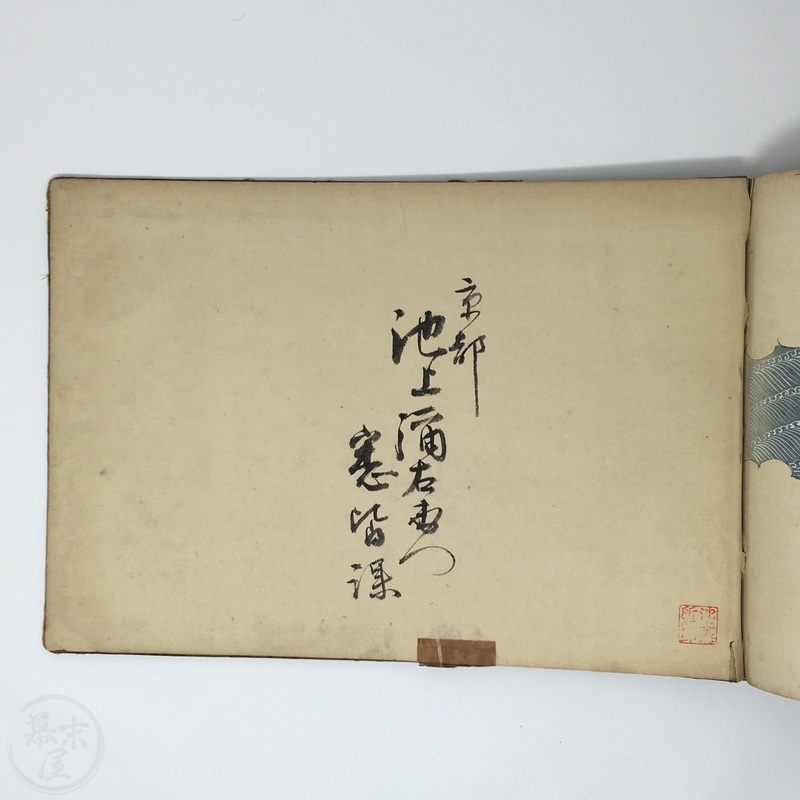 京都
池上右衛門
悉皆課
幕末屋